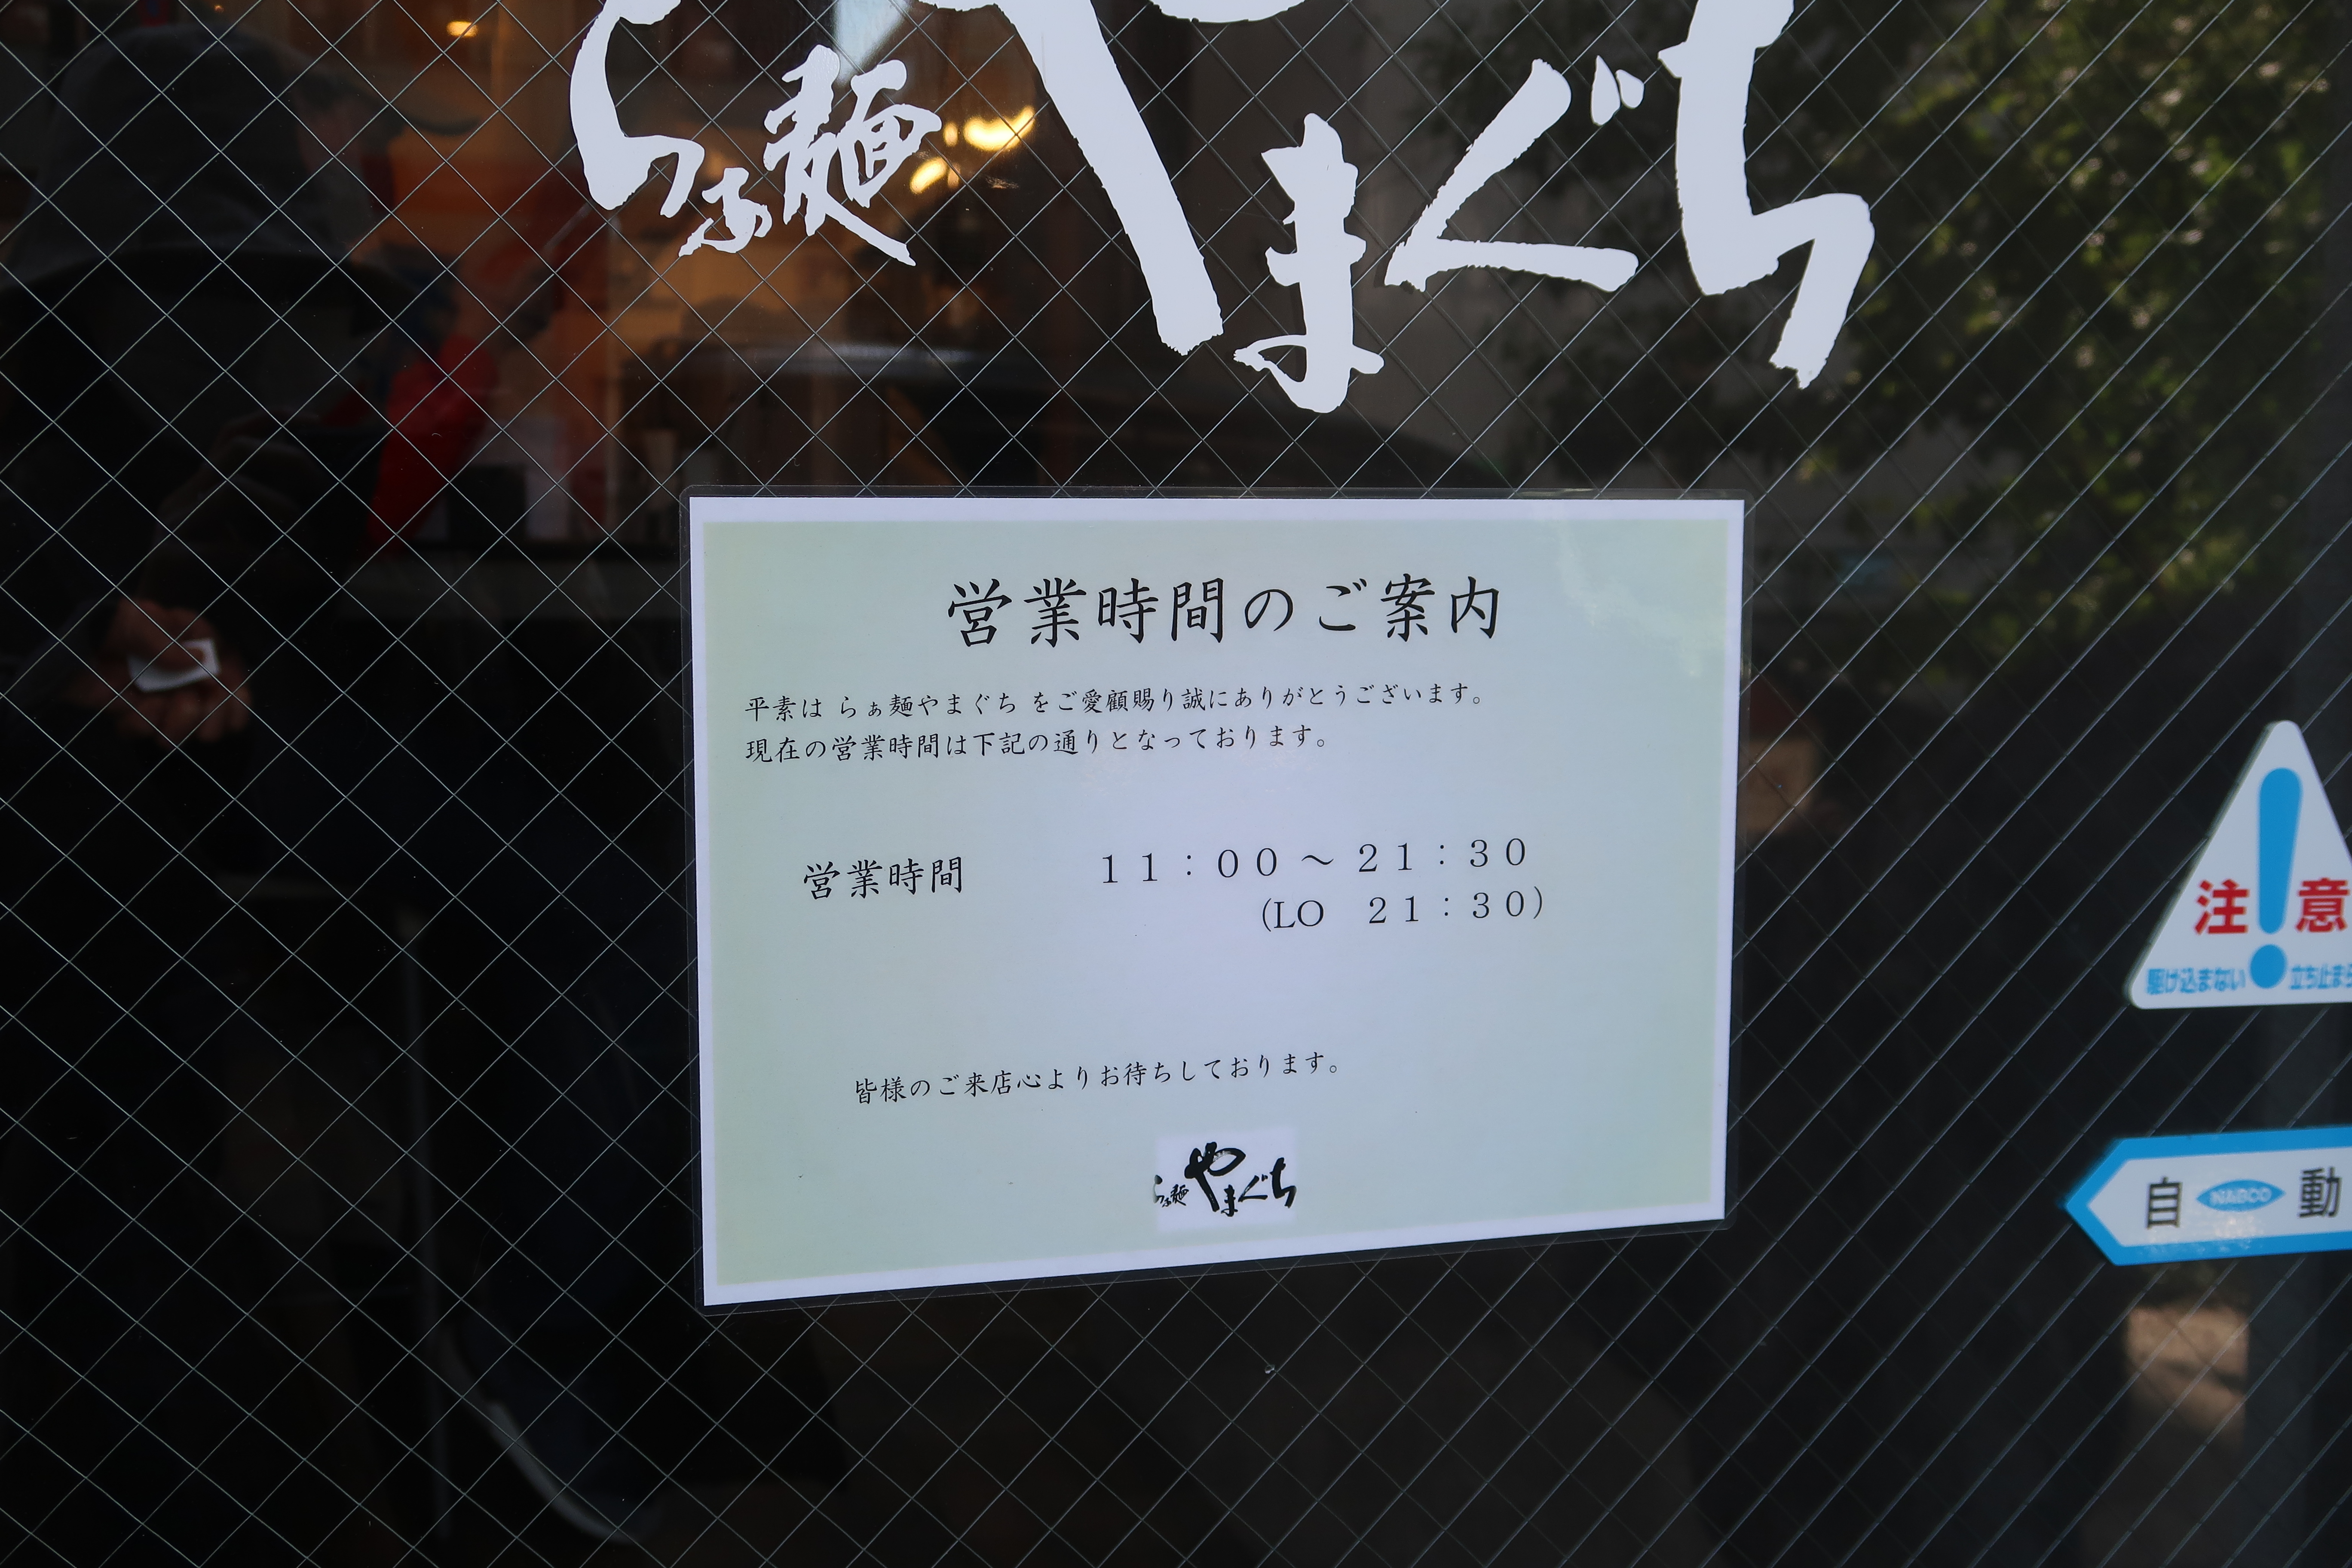 らぁ麺 やまぐち
営業時間のご案内
平素は らぁ麺やまぐち をご愛顧賜り誠にありがとうございます。
現在の営業時間は下記の通りとなっております。
営業時間 11:00～21:30
(LO 21:30)
皆様のご来店心よりお待ちしております。
らぁ麺 やまぐち
注意
駆け込まない 立ち止まら
自 NABCO 動